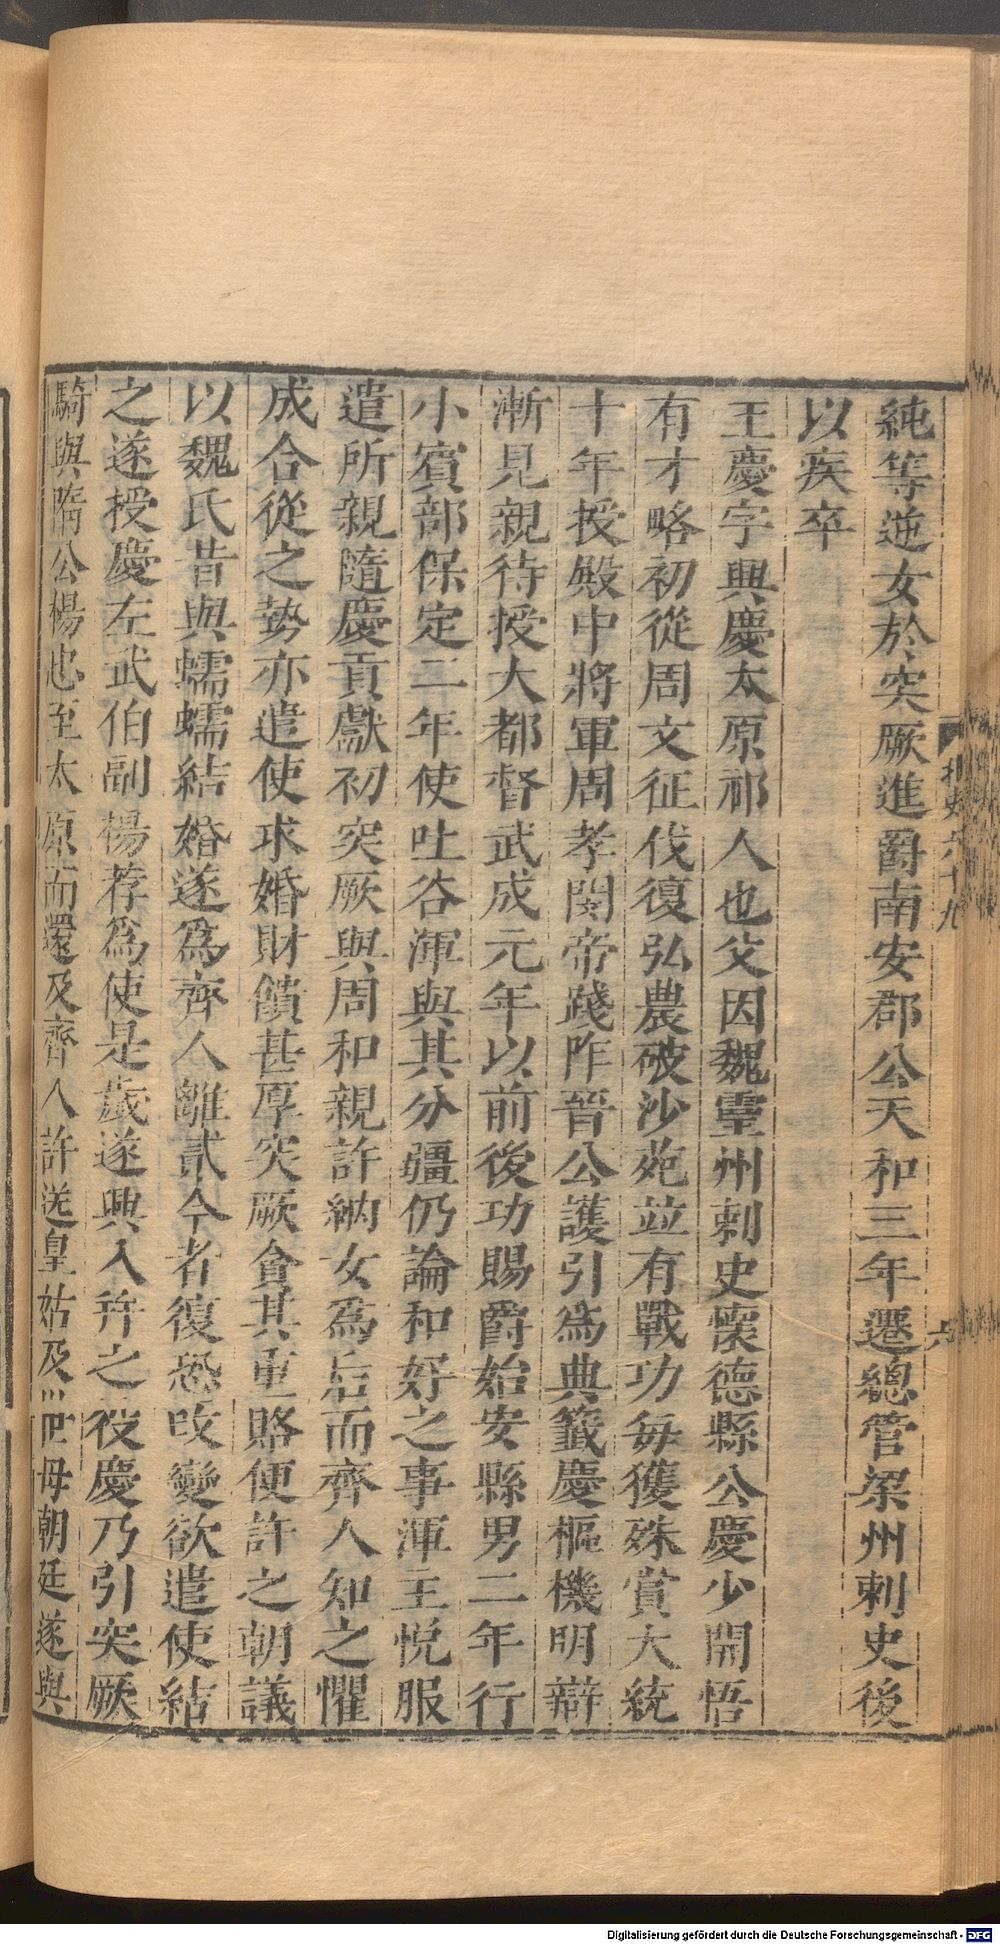 純等逆女於突厥進爵南安郡公天和三年遷總管梁州刺史後
以疾卒
王慶字興慶太原祁人也父因魏靈州刺史懷德縣公慶少開悟
有才略初從周文征伐復弘農破沙苑並有戰功每獲殊賞大統
十年授殿中將軍周孝閔帝踐阼晉公護引為典籤慶樞機明辯
漸見親待授大都督武成元年以前後功賜爵始安縣男二年行
小賓部保定二年使吐谷渾與其分疆仍論和好之事渾主悅服
遣所親隨慶貢獻初突厥與周和親許納女為后而齊人知之懼
成合從之勢亦遣使求婚財饋甚厚突厥貪其重賂便許之朝議
以魏氏昔與蠕蠕結婚遂為齊人離貳今者復恐改變欲遣使結
之遂授慶左武伯副楊荐為使是歲遂興入并之役慶乃引突厥
騎與隋公楊忠至太原而還及齊人許送皇姑及世母朝廷遂與
北史六十九
六
Digitalisierung gefördert durch die Deutsche Forschungsgemeinschaft - DFG